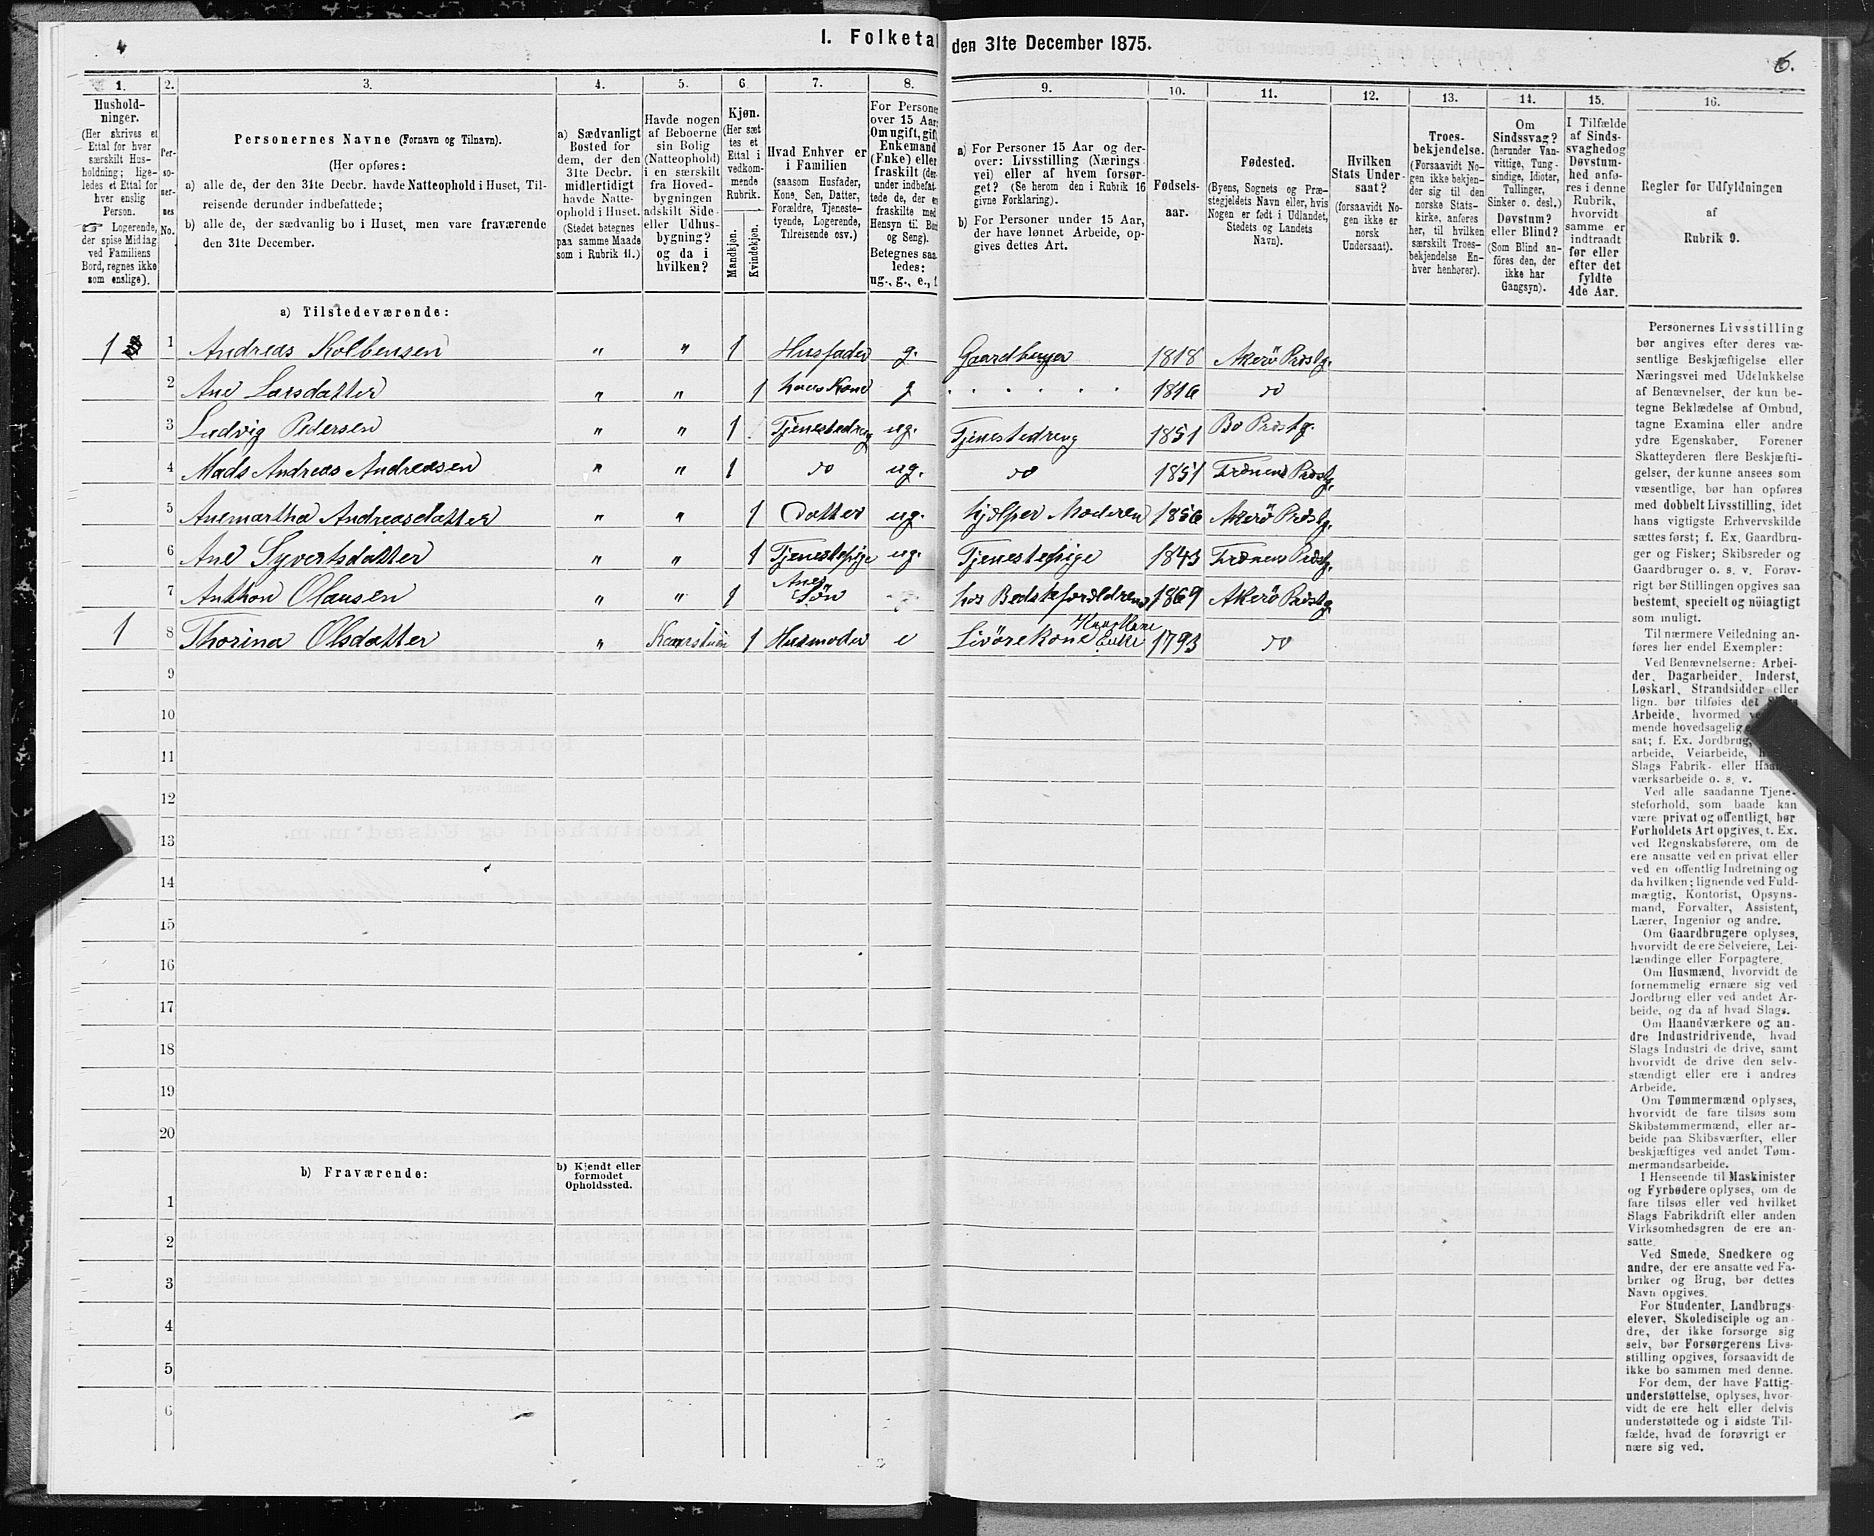 4
I. Folketal den 31te December 1875.
6.
1.
Hushold-
ninger.
(Her skrives et
Ettal for hver
særskilt Hus-
holdning; lige-
ledes et Ettal for
hver enslig
Person.
☞ Logerende,
der spise Middag
ved Familiens
Bord, regnes ikke
som enslige).
2.
Per-
so-
ner-
nes
No.
3.
Personernes Navne (Fornavn og Tilnavn).
(Her opføres:
a) alle de, der den 31te Decbr. havde Natteophold i Huset, Til-
reisende derunder indbefattede;
b) alle de, der sædvanlig bo i Huset, men vare fraværende
den 31te December.
4.
a) Sædvanligt
Bosted for
dem, der den
31te Decbr.
midlertidigt
havde Natte-
ophold i Huset.
(Stedet betegnes
paa samme Maade
som i Rubrik 11.)
5.
Havde nogen
af Beboerne
sin Bolig
(Natteophold)
i en særskilt
fra Hoved-
bygningen
adskilt Side-
eller Udhus-
bygning?
og da i
hvilken?
6
Kjøn.
(Her sæt-
tes et
Ettal i
vedkom-
mende
Rubrik.
Mandkjøn.
Kvindekjøn.
7.
Hvad Enhver er
i Familien
(saasom Husfader,
Kone, Søn, Datter,
Forældre, Tjeneste-
tyende, Logerende,
Tilreisende osv.)
8.
For Personer
over 15 Aar:
Om ugift, gift,
Enkemand
(Enke) eller
fraskilt (der-
under indbefat-
tede de, der ere
fraskilte med
Hensyn til Bord
og Seng).
Betegnes saa-
ledes:
ug., g., e., f.
9.
a) For Personer 15 Aar og der-
over: Livsstilling (Nærings-
vei) eller af hvem forsør-
get? (Se herom den i Rubrik 16
givne Forklaring).
b) For Personer under 15 Aar,
der have lønnet Arbeide, op-
gives dettes Art.
10.
Fødsels-
aar.
11.
Fødested.
(Byens, Sognets og Præ-
stegjeldets Navn eller, hvis
Nogen er født i Udlandet,
Stedets og Landets
Navn).
12.
Hvilken
Stats Under-
saat?
(forsaavidt No-
gen ikke er
norsk
Undersaat).
13.
Troes-
bekjendelse.
(Forsaavidt No-
gen ikke bekjen-
der sig til den
norske Stats-
kirke, anføres
her, til hvilken
særskilt Troes-
bekjendelse En-
hver henhører).
14.
Om
Sindssvag?
(herunder Van-
vittige, Tung-
sindige, Idioter,
Tullinger,
Sinker o. desl.)
Døvstum?
eller Blind?
(Som Blind an-
føres den, der
ikke har
Gangsyn).
15.
I Tilfælde
af Sinds-
svaghed og
Døvstum-
hed anfø-
res i denne
Rubrik,
hvorvidt
samme er
indtraadt
før eller
efter det
fyldte
4de Aar.
16.
Regler for Udfyldningen
af
Rubrik 9.
a) Tilstedeværende:
1 1 Andreas Kolbensen " " 1 Husfader g. Gaardbruger 1818 Akerö Præstg.
2 Ane Larsdatter " " 1 hans Kone g . . . . . . 1816 do
3 Ludvig Pedersen " " 1 Tjenestedreng ug. Tjenestedreng 1851 Bo Præstg.
4 Mads Andreas Andreasen " " 1 do ug. do 1851 Frænens Præstg.
5 Anemartha Andreasdatter " " 1 Datter ug. hjelper Moderen 1856 Akerö Præstg.
6 Ane Syvertsdatter " " 1 Tjenestepige ug. Tjenestepige 1843 Frænens Præstg.
7 Anthon Olausen " " 1 Anes Søn hos Bedsteforældrene 1869 Akerö Præstg.
1 8 Thorina Olsdatter " Kaarstuen 1 Husmoder e Livörekone Enke 1793 do
9
10
11
12
13
14
15
16
17
18
19
20
b) Fraværende:
b) Kjendt eller
formodet
Opholdssted.
1
2
3
4
5
6
Personernes Livsstilling
bør angives efter deres væ-
sentlige Beskjæftigelse eller
Næringsvei med Udelukkelse
af Benævnelser, der kun be-
tegne Beklædelse af Ombud,
tagne Examina eller andre
ydre Egenskaber. Forener
Skatteyderen flere Beskjæfti-
gelser, der kunne ansees som
væsentlige, bør han opføres
med dobbelt Livsstilling, idet
hans vigtigste Erhvervskilde
sættes først; f. Ex. Gaardbru-
ger og Fisker; Skibsreder og
Gaardbruger o. s. v. Forøv-
rigt bør Stillingen opgives saa
bestemt, specielt og nöiagtigt
som muligt.
Til nærmere Veiledning an-
føres her endel Exempler:
Ved Benævnelserne: Arbei-
der, Dagarbeider, Inderst,
Løskarl, Strandsidder eller
lign. bør tilføies det Slags
Arbeide, hvormed
mende hovedsagelig
sat; f. Ex. Jordbrug,
arbeide, Veiarbeide,
Slags Fabrik- eller
værksarbeide o. s. v.
Ved alle saadanne Tjene-
steforhold, som baade kan
være privat og offentligt, bør
Forholdets Art opgives, t. Ex.
ved Regnskabsførere, om de
ere ansatte ved en privat eller
ved en offentlig Indretning og
da hvilken; lignende ved Fuld-
mægtig, Kontorist, Opsyns-
mand, Forvalter, Assistent,
Lærer, Ingeniør og andre.
Om Gaardbrugere oplyses,
hvorvidt de ere Selveiere, Lei-
lændinge eller Forpagtere.
Om Husmænd, hvorvidt de
fornemmelig ernære sig ved
Jordbrug eller ved andet Ar-
beide, og da af hvad Slags.
Om Haandværkere og an-
dre Industridrivende, hvad
Slags Industri de drive, samt
hvorvidt de drive den selv-
stændigt eller ere i andres
Arbeide.
Om Tømmermænd oplyses,
hvorvidt de fare tilsøs som
Skibstømmermænd, eller ar-
beide paa Skibsværfter, eller
beskjæftiges ved andet Tøm-
mermandsarbeide.
I Henseende til Maskinister
og Fyrbødere oplyses, om de
fare tilsøs eller ved hvilket
Slags Fabrikdrift eller anden
Virksomhedsgren de ere an-
satte.
Ved Smede, Snedkere og
andre, der ere ansatte ved Fa-
briker og Brug, bør dettes
Navn opgives.
For Studenter, Landbrugs-
elever, Skoledisciple og an-
dre, der ikke forsørge sig
selv, bør Forsørgerens Livs-
stilling opgives, forsaavidt de
ikke bo sammen med denne.
For dem, der have Fattig-
understøttelse, oplyses, hvor-
vidt de ere helt eller delvis
understøttede og i sidste Til-
fælde, hvad de forøvrigt er-
nære sig ved.